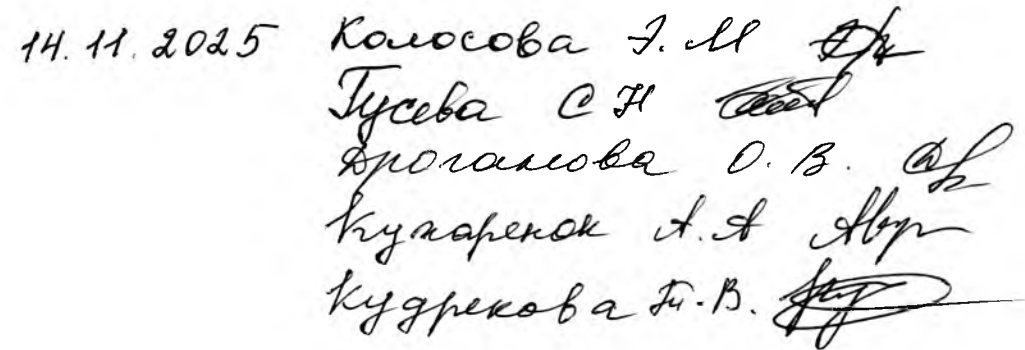 14.11.2025 Колосова Э.М
Гусева С Н
Дроганова О.В.
Кухаренок А.А
Кудрекова Т.В.